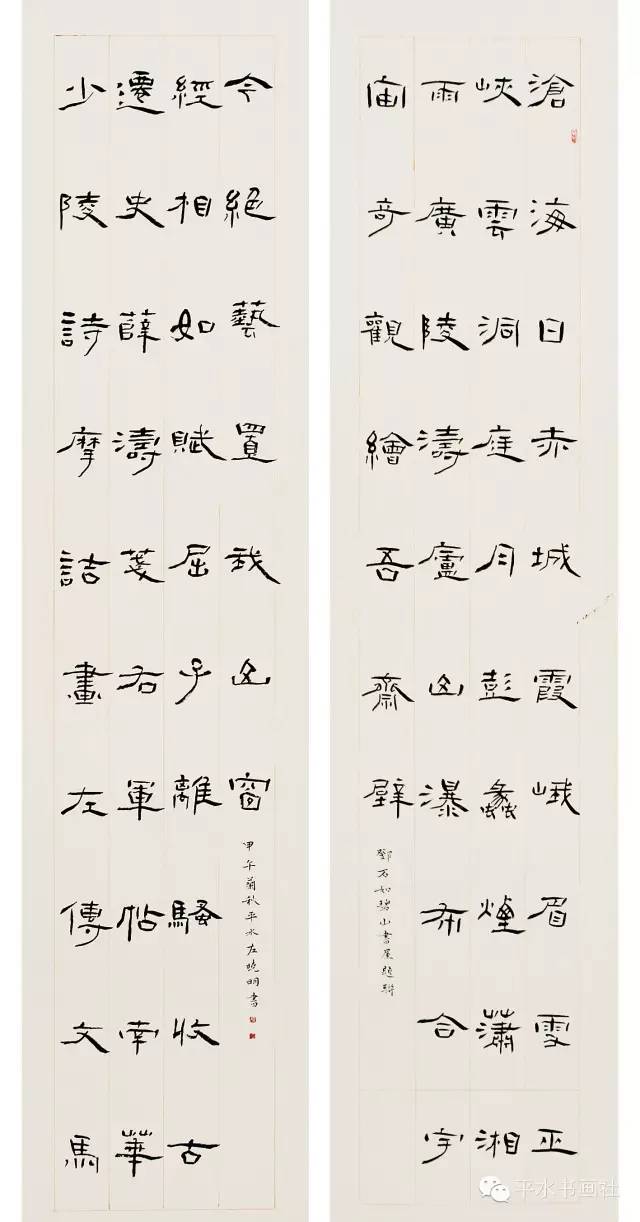 滄海日赤城霞峨眉雪巫
峽雲洞庭月彭蠡煙瀟湘
雨廣陵濤廬山瀑布合宇
宙奇觀繪吾齋壁
鄧石如碧山書屋題聯
少陵詩摩詰畫左傳文馬
遷史薛濤箋右軍帖南華
經相如賦屈子離騷收古
今絕藝置我山窗
甲午菊秋平水左曉明書
平水书画社